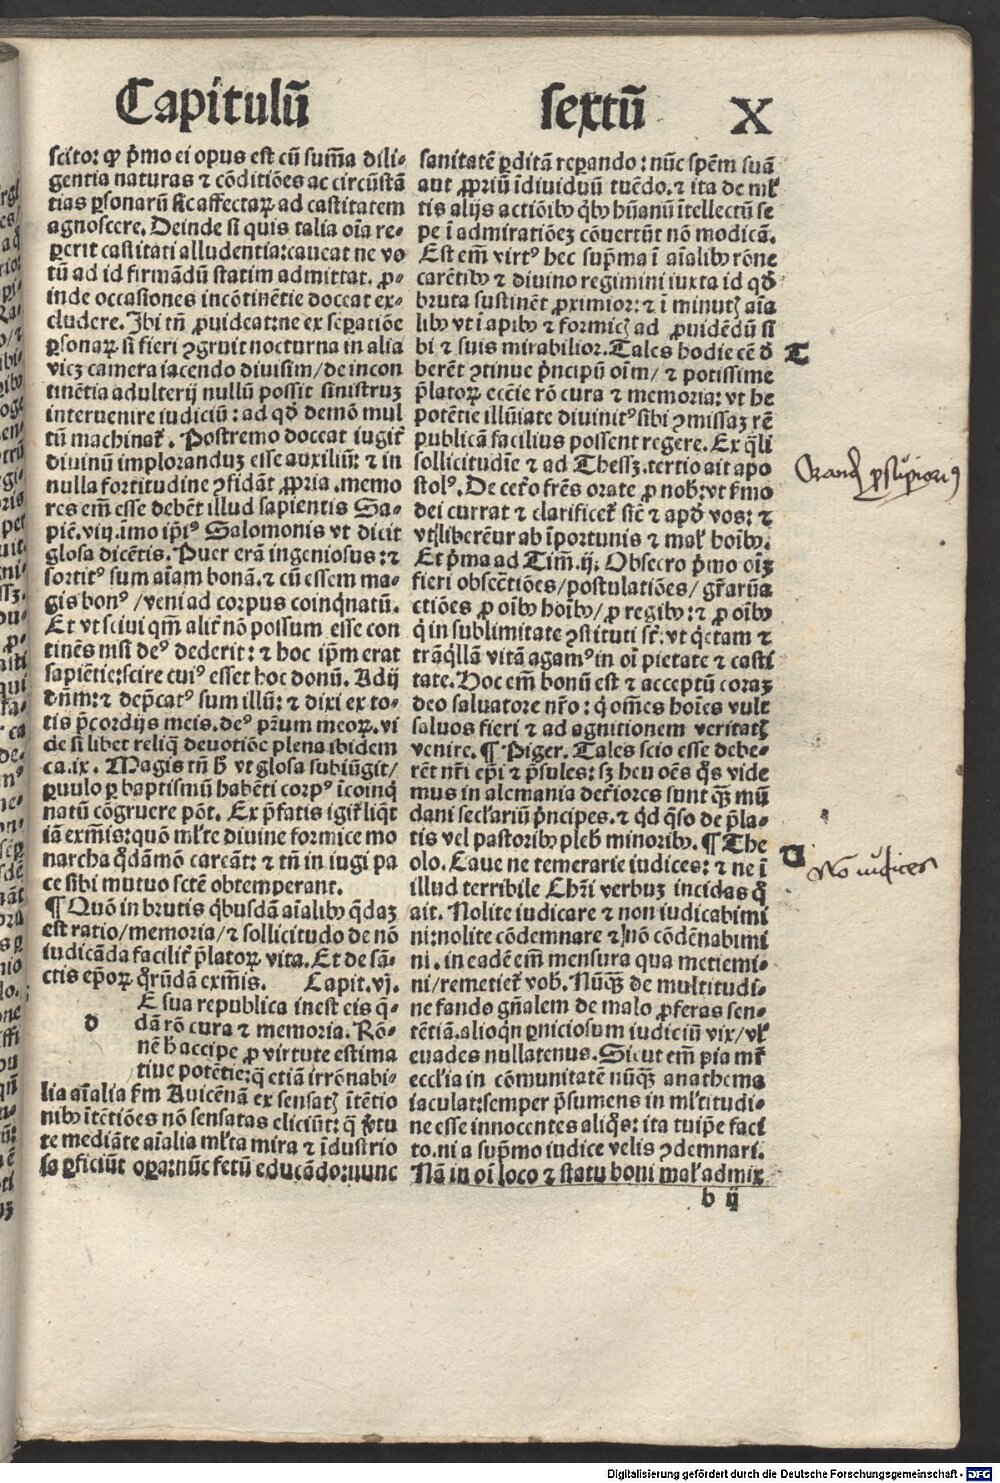 Capitulū sextū X
scito: ꝙ p̄mo ei opus est cū sum̄a dili-
gentia naturas ⁊ cōditiōes ac circūstā
tias ꝑsonarū sic affectaꝝ ad castitatem
agnoscere. Deinde si quis talia oīa re-
ꝑerit castitati alludentia: caueat ne vo
tū ad id firmādū statim admittat. ꝓ-
inde occasiones incōtinētie doceat ex-
cludere. Ibi tn̄ ꝓuideat: ne ex seꝑatiōe
ꝑsonaꝝ si fieri ꝯgruit nocturna in alia
vicꝫ camera iacendo diuisim/ de incon
tinētia adulterij nullū possit sinistruꝫ
interuenire iudiciū: ad qd̄ demō mul
tū machinat̄. Postremo doceat iugit̄
diuinū imploranduꝫ esse auxiliū: ⁊ in
nulla fortitudine ꝯfidāt ꝓpria. memo
res em̄ esse debēt illud sapientis Sa-
piē. viij. imo ip̄iꝰ Salomonis vt dicit
glosa dicētis. Puer erā ingeniosus: ⁊
sortitꝰ sum aīam bonā. ⁊ cū essem ma-
gis bonꝰ / veni ad corpus coinq̄natū.
Et vt sciui qm̄ alit̄ nō possum esse con
tinēs nisi deꝰ dederit: ⁊ hoc ip̄m erat
sapiētie: scire cuiꝰ esset hoc donū. Adij
dn̄m: ⁊ dep̄catꝰ sum illū: ⁊ dixi ex to-
tis p̄cordijs meis. deꝰ pr̄um meoꝝ. vi
de si libet reliq̄ deuotiōe plena ibidem
ca. ix. Magis tn̄ h̄ vt glosa subiūgit/
ꝑuulo ꝑ baptismū habēti corpꝰ īcoinq̄
natū cōgruere pōt. Ex p̄fatis igit̄ liq̄t
iā exm̄is: quō ml̄te diuine formice mo
narcha q̄dāmō careāt: ⁊ tn̄ in iugi pa
ce sibi mutuo sctē obtemperant.
¶ Quō in brutis q̄busdā aīalibꝰ q̄daꝫ
est ratio/ memoria/ ⁊ sollicitudo de nō
iudicāda facilit̄ p̄latoꝝ vita. Et de sā-
ctis ep̄oꝝ q̄rūdā exm̄is. Capit. vj.
E sua republica inest eis q̄-
d dā rō cura ⁊ memoria. Rō-
nē h̄ accipe ꝓ virtute estima
tiue potētie: q̄ etiā irrōnabi-
lia aīalia s̄m Auicēnā ex sensatꝭ ītētio
nibꝰ ītētiōes nō sensatas eliciūt: q̄ v̄tu
te mediāte aīalia ml̄ta mira ⁊ īdustrio
sa ꝑficiūt oꝑa: nūc fetū educādo: nunc
sanitatē ꝑditā reꝑando: nūc spēm suā
aut ꝓpriū īdiuiduū tuēdo. ⁊ ita de ml̄
tis alijs actiōibꝰ q̄bꝰ hūanū ītellectū se
pe ī admiratiōeꝫ cōuertūt nō modicā.
Est em̄ virtꝰ hec sup̄ma ī aīalibꝰ rōne
carētibꝰ ⁊ diuino regimini iuxta id qd̄
bruta sustinēt ꝓximior: ⁊ ī minutꝭ aīa
libꝰ vt ī apibꝰ ⁊ formicꝭ ad ꝓuidēdū si
bi ⁊ suis mirabilior. Tales hodie eē d̄ T
berēt ꝯtinue p̄ncipū oīm/ ⁊ potissime
p̄latoꝝ ecc̄ie rō cura ⁊ memoria: vt he
potētie illūiate diuinitꝰ sibi ꝯmissaꝫ rē
publicā facilius possent regere. Ex q̄li
sollicitudīe ⁊ ad Thessꝫ. tertio ait apo
stolꝰ. De cet̄o frēs orate ꝓ nob̄: vt s̄mo
dei currat ⁊ clarificet̄ sic̄ ⁊ apd̄ vos: ⁊
vt liberēur ab īportunis ⁊ mal̄ hoībꝰ.
Et p̄ma ad Tim̄. ij. Obsecro p̄mo oīꝫ
fieri obsec̄tiōes/ postulatiōes/ gr̄arūa
ctiōes ꝓ oībꝰ hoībꝰ/ ꝓ regibꝰ: ⁊ ꝓ oībꝰ
q̄ in sublimitate ꝯstituti st̄: vt q̄etam ⁊
trāq̄llā vitā agamꝰ in oī pietate ⁊ casti
tate. Hoc em̄ bonū est ⁊ acceptū coraꝫ
deo saluatore nr̄o: q̄ om̄es hoīes vult
saluos fieri ⁊ ad agnitionem veritatꝭ
venire. ¶ Piger. Tales scio esse debe-
rēt nr̄i ep̄i ⁊ p̄sules: sꝫ heu oēs q̄s vide
mus in alemania det̄iores sunt qꝫ mū
dani secl̄ariū p̄ncipes. ⁊ qd̄ q̄so de p̄la-
tis vel pastoribꝰ pleb̄ minoribꝰ. ¶ The
olo. Caue ne temerarie iudices: ⁊ ne ī V
illud terribile Chr̄i verbuꝫ incidas q̄
ait. Nolite iudicare ⁊ non iudicabimi
ni: nolite cōdemnare ⁊ nō cōdēnabimi
ni. in eadē em̄ mensura qua metiemi-
ni/ remetiet̄ vob̄. Nūqꝫ de multitudi-
ne fando gn̄alem de malo ꝓferas sen-
tētiā. alioqn̄ ꝑniciosum iudiciū vix/ vl̄
euades nullatenus. Sicut em̄ pia mr̄
eccl̄ia in cōmunitatē nūqꝫ anathema
iaculat: semper p̄sumens in ml̄titudi-
ne esse innocentes aliq̄s: ita tuip̄e faci
to. ni a sup̄mo iudice velis ꝯdemnari.
Nā in oī loco ⁊ statu boni mal̄ admix
b ij
No iudices
Digitalisierung gefördert durch die Deutsche Forschungsgemeinschaft - DFG